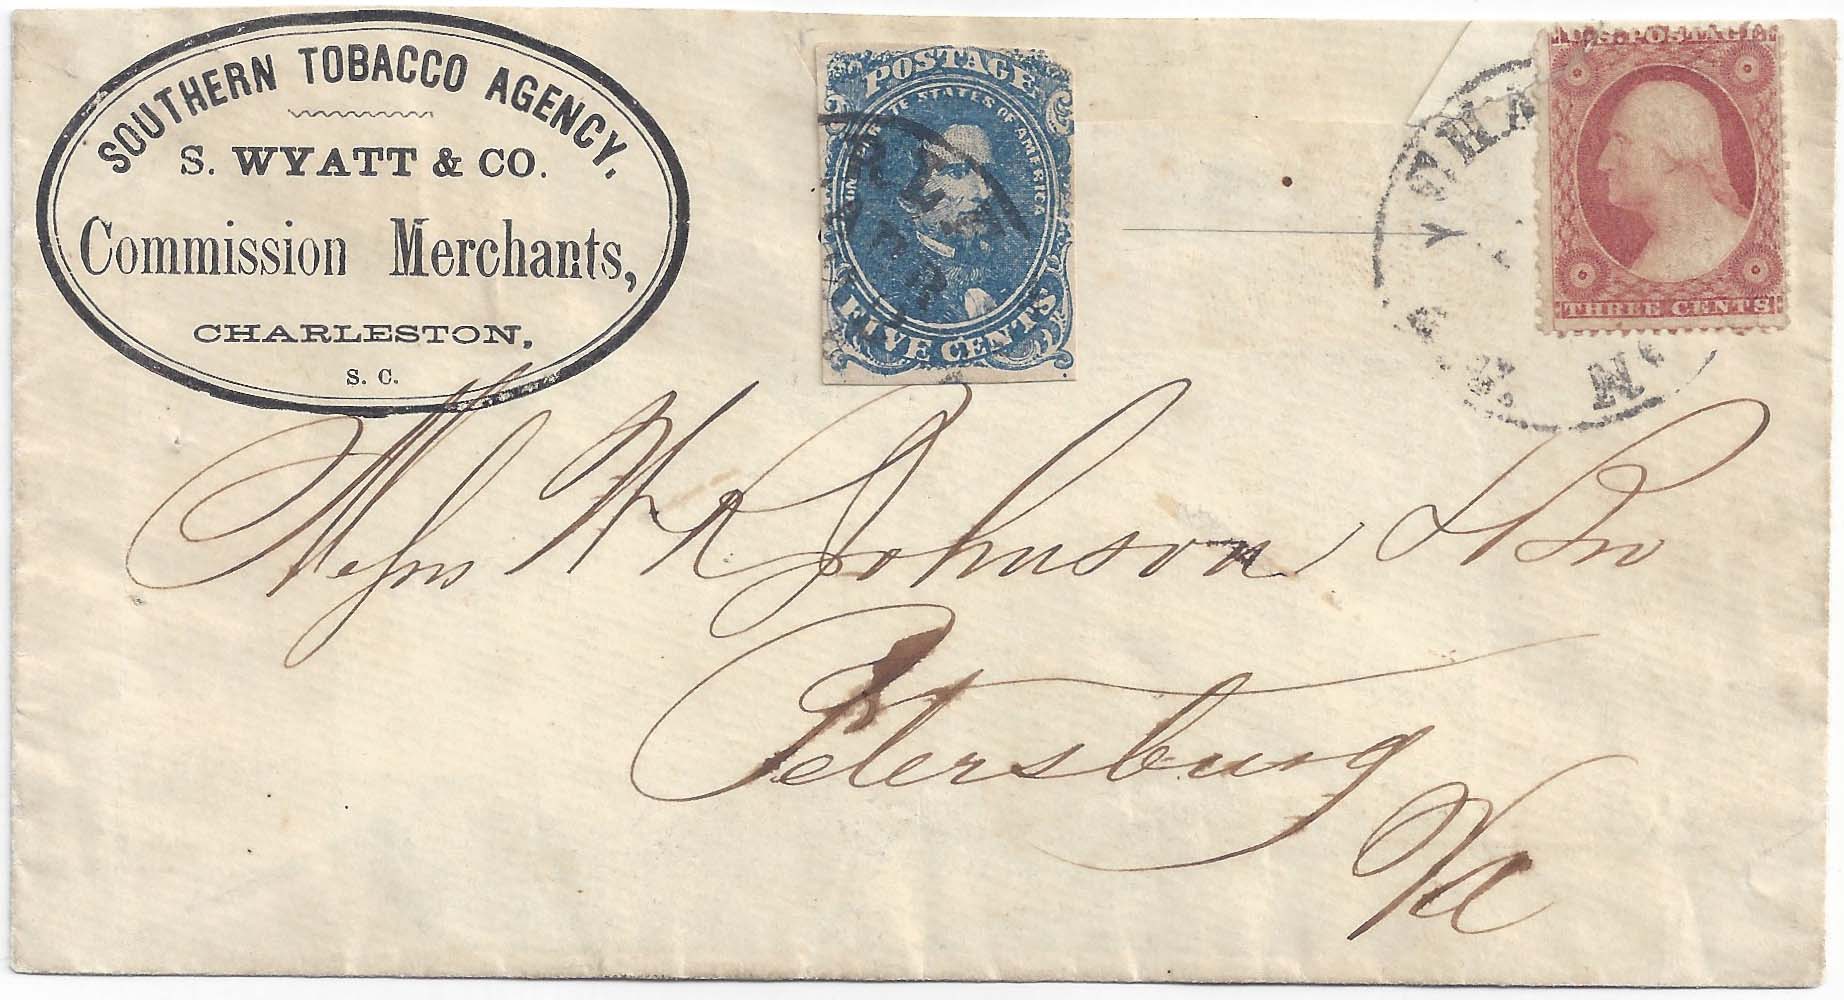 SOUTHERN TOBACCO AGENCY.
S. WYATT & CO.
Commission Merchants,
CHARLESTON,
S. C.
POSTAGE
STATES OF AMERICA
FIVE CENTS
U.S. POSTAGE
THREE CENTS
Messrs W R Johnson & Bro
Petersburg
Va